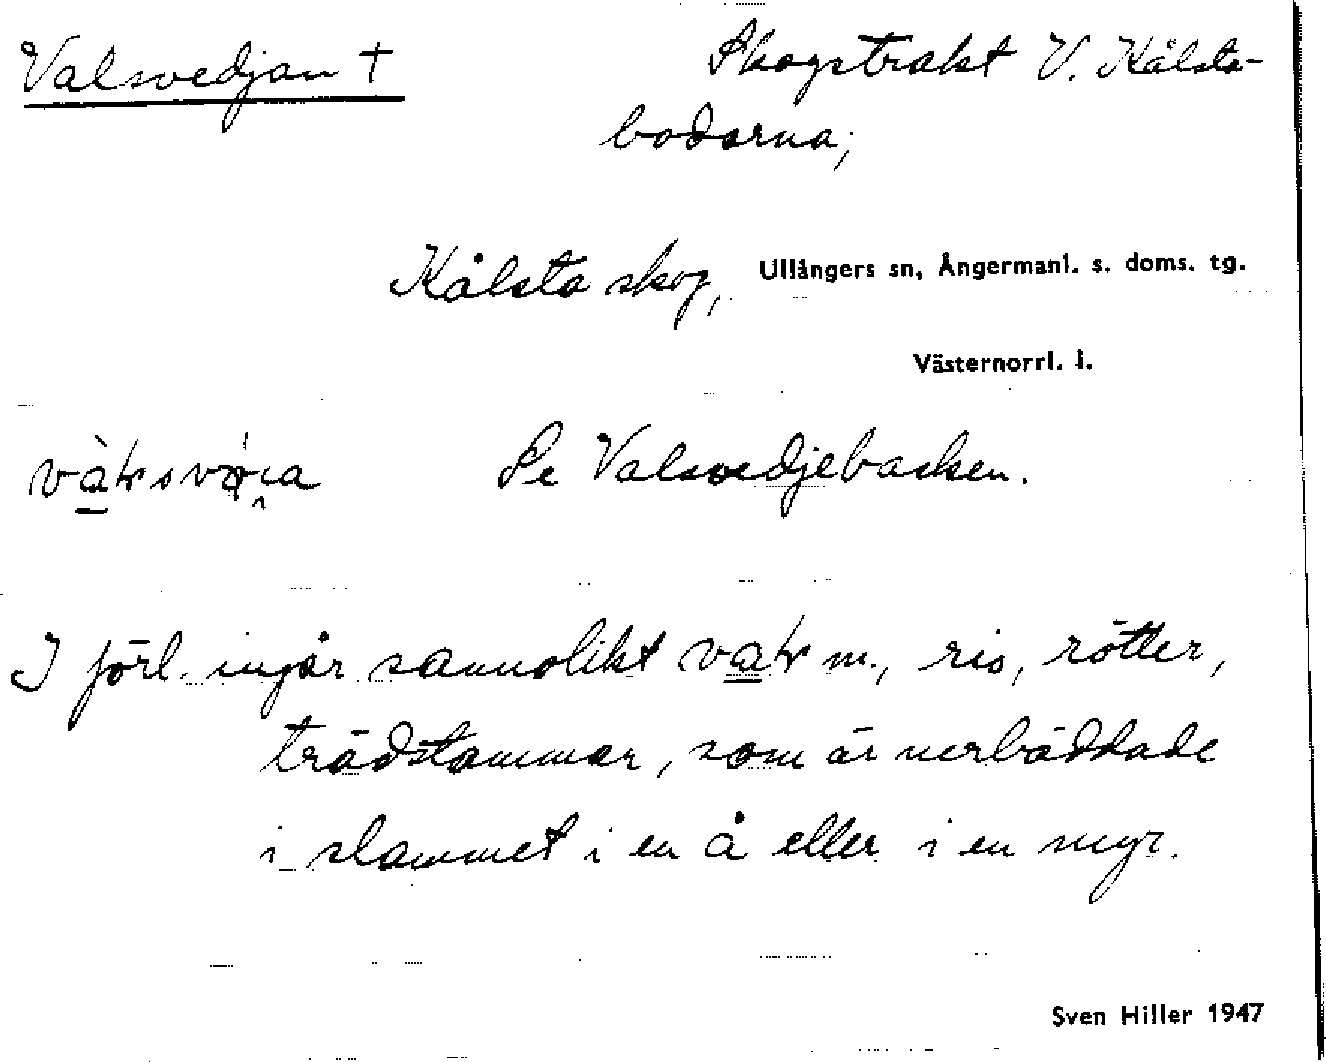 Valsvedjan † Skogstrakt V. Kålsta-
bodarna;
Kålsta skog, Ullångers sn, Ångermanl. s. doms. tg.
Västernorrl. l.
Se Valsvedjebacken.
I förl. ingår sannolikt m., ris, rötter,
trädstammar, som är nerbäddade
i slammet i en å eller i en myr.
Sven Hiller 1947